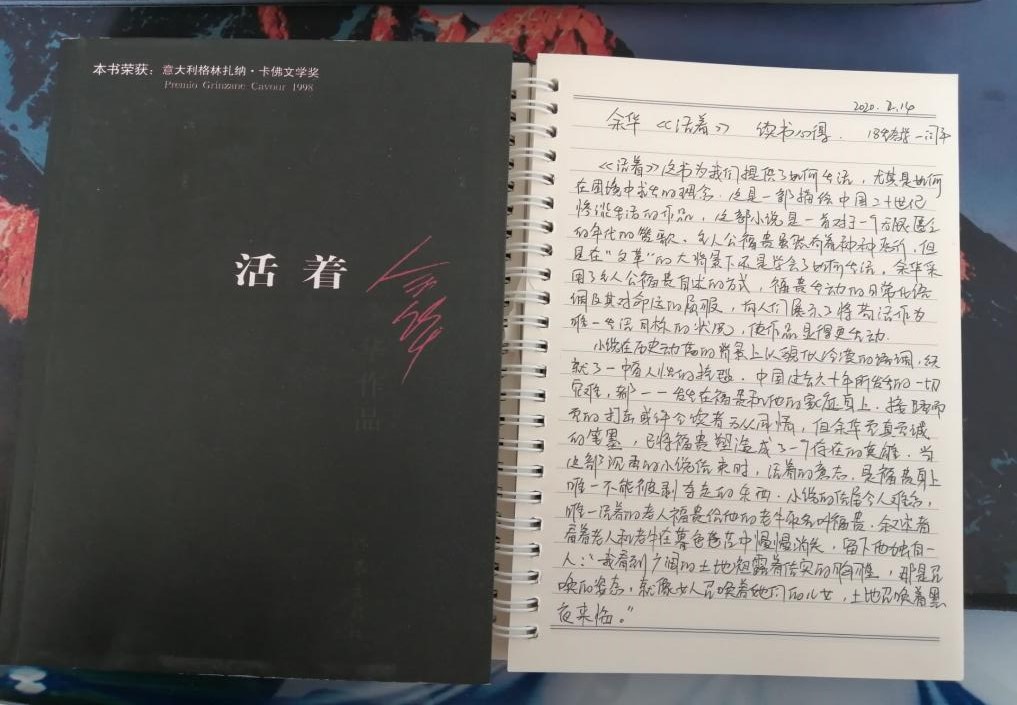 本书荣获：意大利格林扎纳·卡佛文学奖
Premio Grinzane Cavour 1998
活着
作品
2020.2.14
余华《活着》 读书心得.
《活着》这书为我们提供了如何生活，尤其是如何
在困境中求生的理念.这是一部描绘中国二十世纪
惨淡生活的作品，这部小说是一首对于一个
的年代的赞歌.主人公福贵虽然有着种种，但
是在“文革”的大背景下还是学会了如何生活，余华采
用了主人公福贵自述的方式，福贵生动的日常化语
调及其对命运的屈服，向人们展示了将苟活作为
唯一生活目标的状况，使作品显得更生动.
小说在历史动荡的背景上以貌似冷漠的语调，
就了一中.中国过去六十年所发生的一切
灾难，都一一发生在福贵和他的家庭身上.接踵而
至的打击或许令读者无从同情，但余华至真至诚
的笔墨，已将福贵塑造成了一个存在的英雄.当
这部沉重的小说结束时，活着的意志，是福贵身上
唯一不能被剥夺走的东西.小说的结尾令人难忘，
唯一活着的老人福贵给他的老牛取名叫福贵.叙述者
看着老人和老牛在暮色苍茫中慢慢消失，留下他独自一
人：“我看到广阔的土地袒露着结实的胸膛，那是召
唤的姿态，就像女人召唤着她们的儿女，土地召唤着黑
夜来临。”